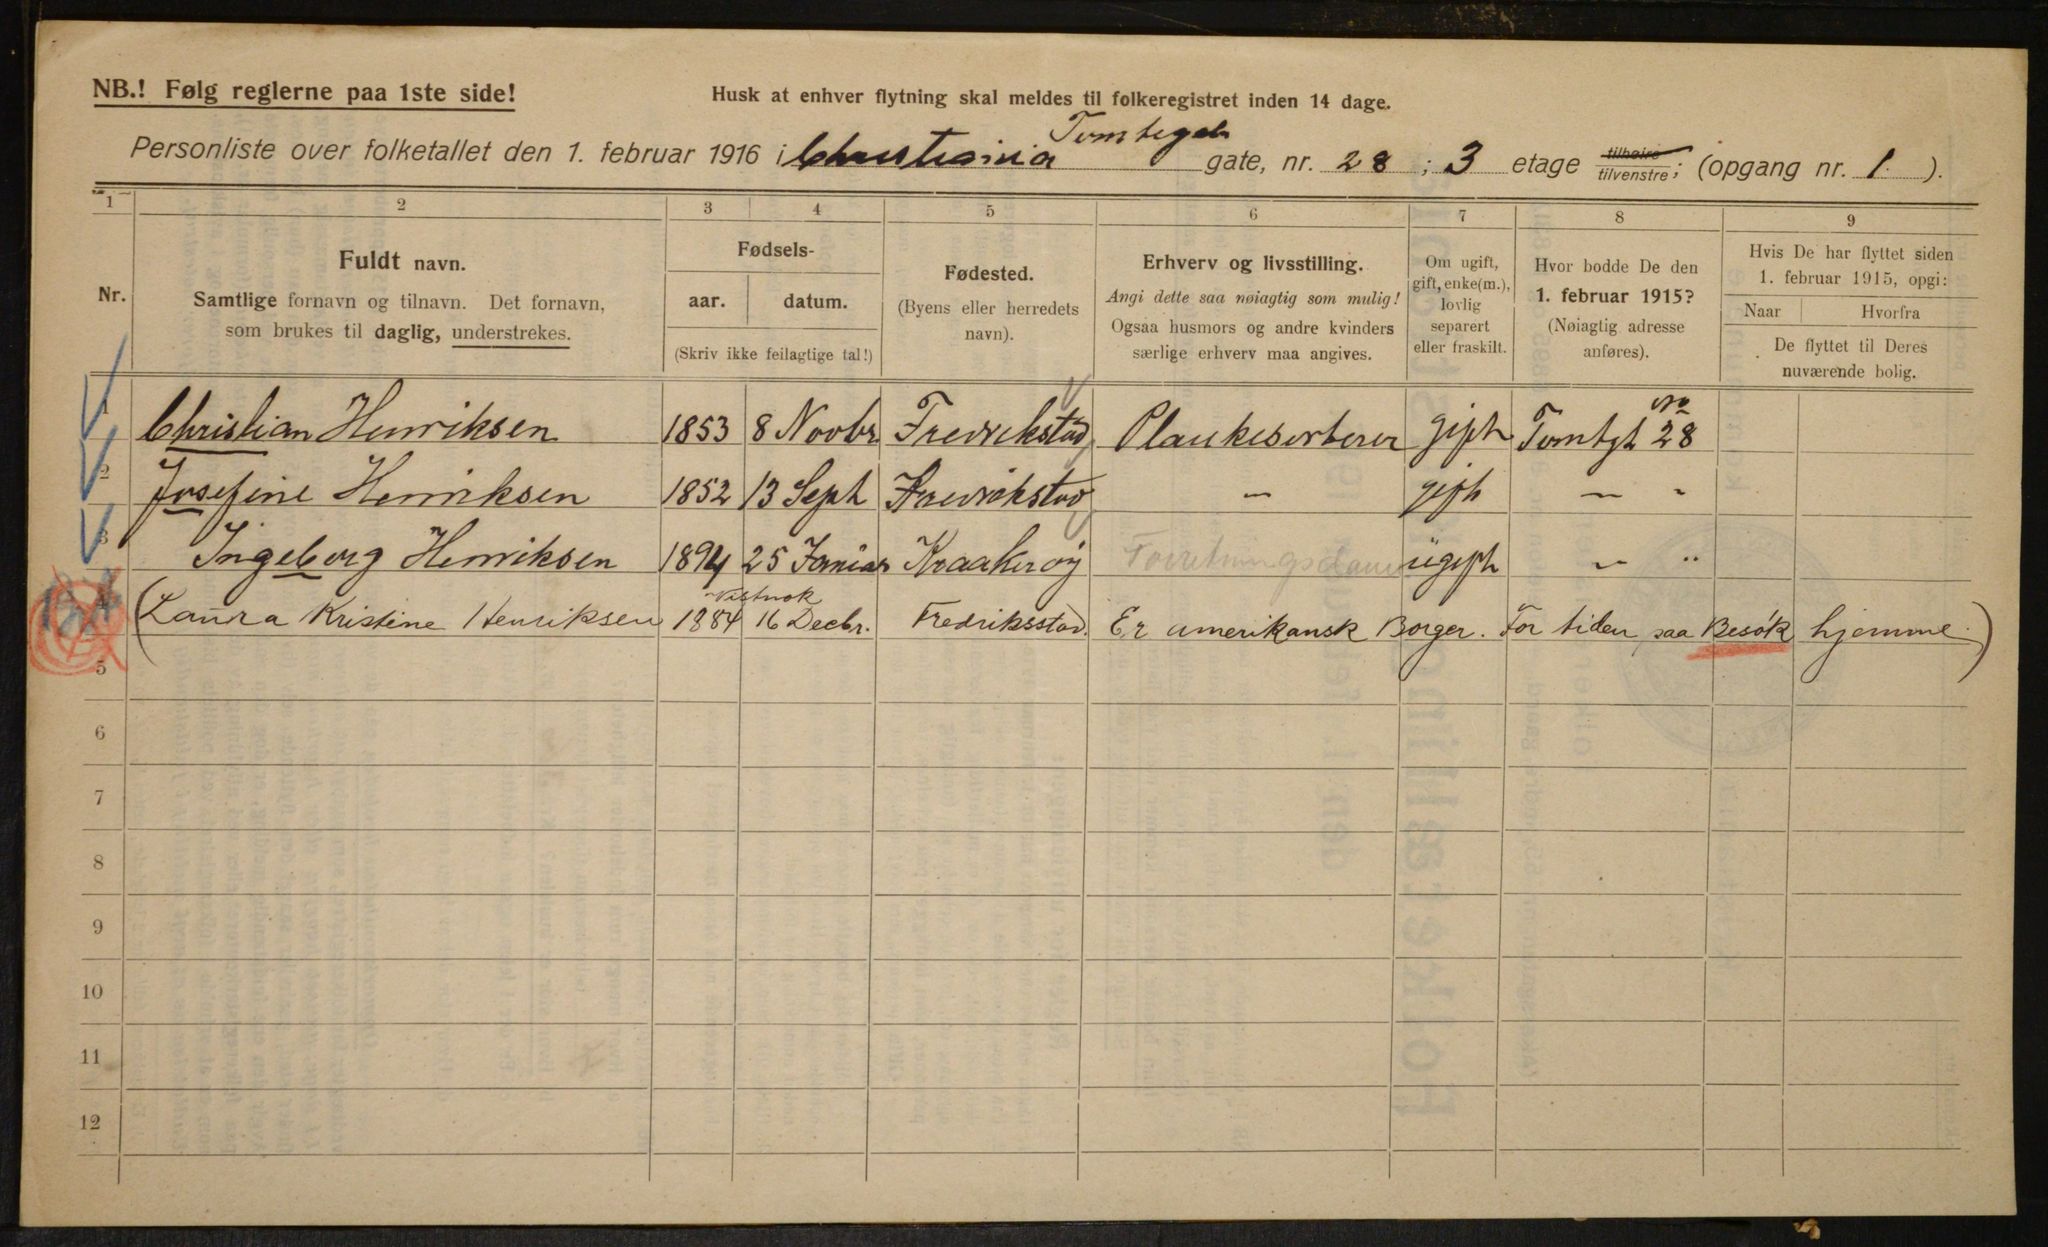 NB.! Følg reglerne paa 1ste side!
Husk at enhver flytning skal meldes til folkeregistret inden 14 dage.
Tomtegat
Personliste over folketallet den 1. februar 1916 i Christiania gate, nr. 28 ; 3 etage tilhøire tilvenstre; (opgang nr. 1. ).
1 2 3 4 5 6 7 8 9
Nr.
Fuldt navn.
Samtlige fornavn og tilnavn. Det fornavn,
som brukes til daglig, understrekes.
Fødsels-
aar. datum.
(Skriv ikke feilagtige tal!)
Fødested.
(Byens eller herredets
navn).
Erhverv og livsstilling.
Angi dette saa nøiagtig som mulig!
Ogsaa husmors og andre kvinders
særlige erhverv maa angives.
Om ugift,
gift, enke(m.),
lovlig
separert
eller fraskilt.
Hvor bodde De den
1. februar 1915?
(Nøiagtig adresse
anføres).
Hvis De har flyttet siden
1. februar 1915, opgi:
Naar Hvorfra
De flyttet til Deres
nuværende bolig.
1 Christian Henriksen 1853 8 Novbr Fredrikstad Plankesorterer gift Tomtgt No 28
2 Josefine Henriksen 1852 13 Sept Fredrikstad — gift — "
3 Ingeborg Henriksen 1894 25 Januar Kraakerøy Forretningsdame ugift — "
(Laura Kristine Henriksen 1884 Vistnok 16 Decbr. Fredriksstad. Er amerikansk Borger. For tiden paa Besøk hjemme.)
5
6
7
8
9
10
11
12